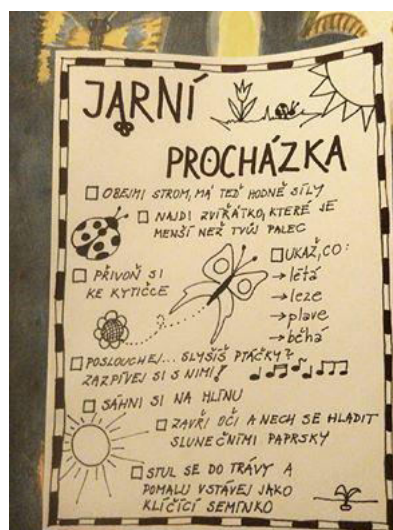 JARNÍ
PROCHÁZKA
OBEJMI STROM, MÁ TEĎ HODNĚ SÍLY
NAJDI ZVÍŘÁTKO, KTERÉ JE
MENŠÍ NEŽ TVŮJ PALEC
PŘIVOŇ SI
KE KYTIČCE
UKAŽ, CO:
→ létá
→ leze
→ plave
→ běhá
POSLOUCHEJ... SLYŠÍŠ PTÁČKY?
ZAZPÍVEJ SI S NIMI!
SÁHNI SI NA HLÍNU
ZAVŘI OČI A NECH SE HLADIT
SLUNEČNÍMI PAPRSKY
STUL SE DO TRÁVY A
POMALU VSTÁVEJ JAKO
KLÍČÍCÍ SEMÍNKO